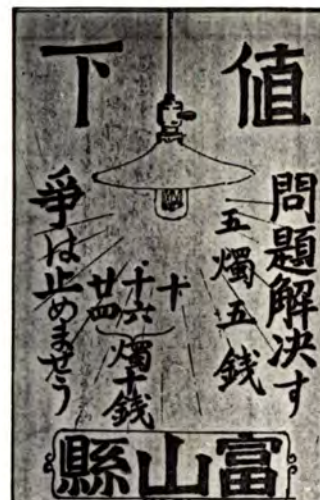 値下
問題解決す
五燭五銭
十
十六燭十銭
廿四
爭は止めませう
富山縣